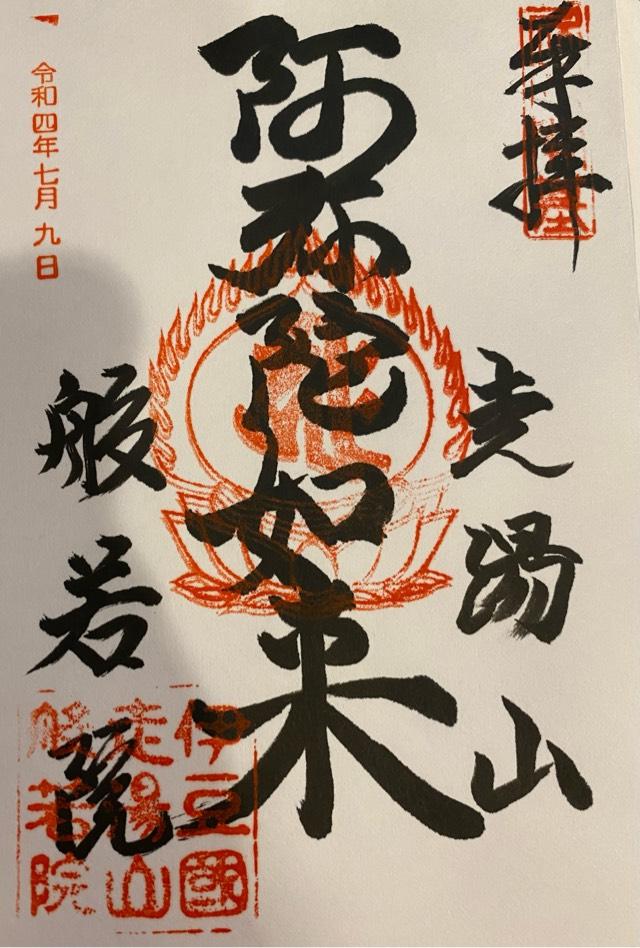 奉拝
走湯山
阿弥陀如来
般若院
令和四年七月九日
伊豆國
走湯山
般若院